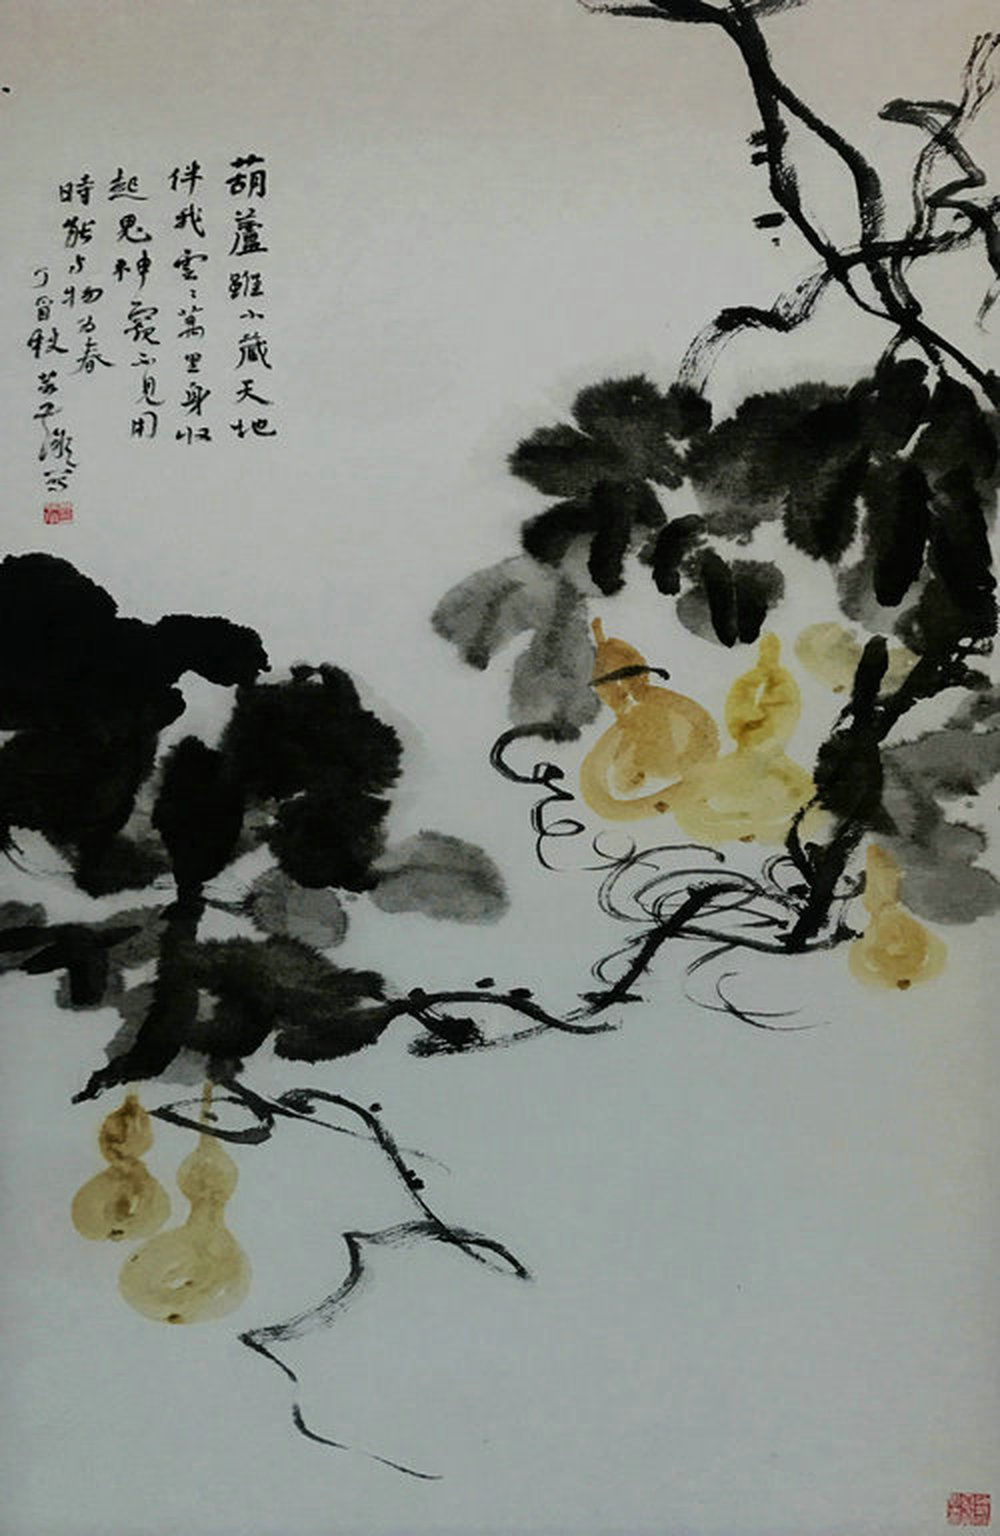 葫蘆雖小藏天地
伴我雲〻萬里身收
起鬼神窺不見用
時能与物为春
丁酉秋